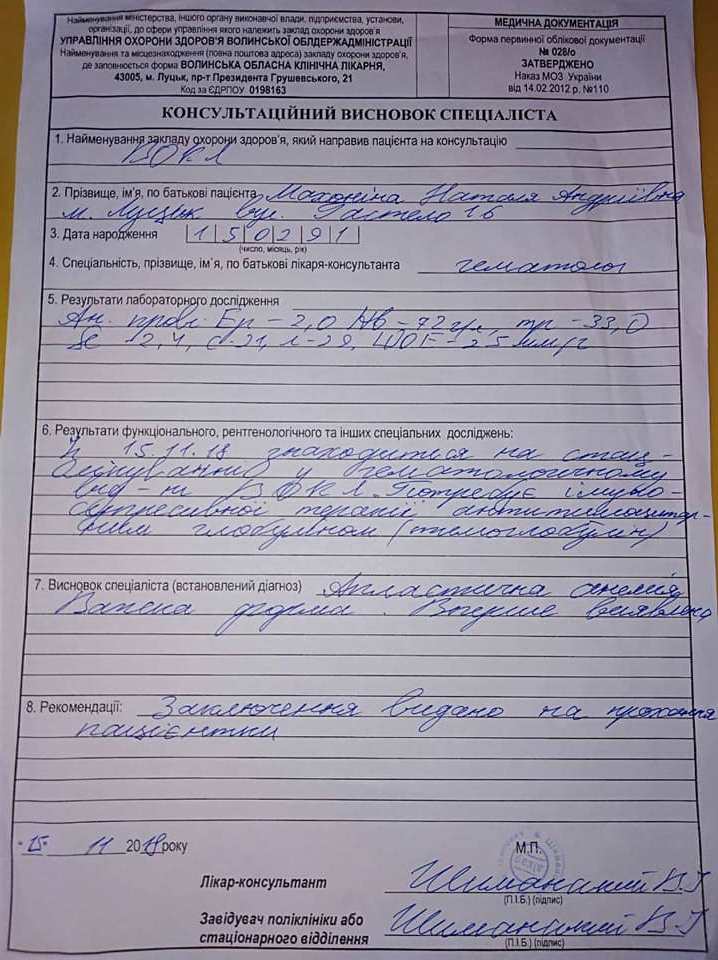 Найменування міністерства, іншого органу виконавчої влади, підприємства, установи,
організації, до сфери управління якого належить заклад охорони здоров'я
УПРАВЛІННЯ ОХОРОНИ ЗДОРОВ'Я ВОЛИНСЬКОЇ ОБЛДЕРЖАДМІНІСТРАЦІЇ
Найменування та місцезнаходження (повна поштова адреса) закладу охорони здоров'я,
де заповнюється форма ВОЛИНСЬКА ОБЛАСНА КЛІНІЧНА ЛІКАРНЯ,
43005, м. Луцьк, пр-т Президента Грушевського, 21
Код за ЄДРПОУ 0198163
МЕДИЧНА ДОКУМЕНТАЦІЯ
Форма первинної облікової документації
№ 028/о
ЗАТВЕРДЖЕНО
Наказ МОЗ України
від 14.02.2012 р. №110
КОНСУЛЬТАЦІЙНИЙ ВИСНОВОК СПЕЦІАЛІСТА
1. Найменування закладу охорони здоров'я, який направив пацієнта на консультацію
ВОКЛ
2. Прізвище, ім'я, по батькові пацієнта Махоніна Наталя Андріївна
м. Луцьк вул. Гастело 16
3. Дата народження 150291
(число, місяць, рік)
4. Спеціальність, прізвище, ім'я, по батькові лікаря-консультанта гематолог
5. Результати лабораторного дослідження
Ан. крові Ер - 2,0 Нв - 72 г/л, тр - 33,0
2,4, с-21, л-29, ШОЕ - 25 мм/г
6. Результати функціонального, рентгенологічного та інших спеціальних досліджень:
15.11.18 знаходиться на стац-
лікуванні у гематологичному
від-ні ВОКЛ. Потребує імуно-
супресивної терапії антитимоцитар-
ним глобуліном (тимоглобулін)
7. Висновок спеціаліста (встановлений діагноз) Апластична анемія,
Важка форма. Вперше виявлена
8. Рекомендації: Заключення видано на прохання
пацієнтки
15 11 2018 року
М.П.
Лікар-консультант Шиманський В.І
(П.І.Б.) (підпис)
Завідувач поліклініки або
стаціонарного відділення Шиманський В.І
(П.І.Б.) (підпис)